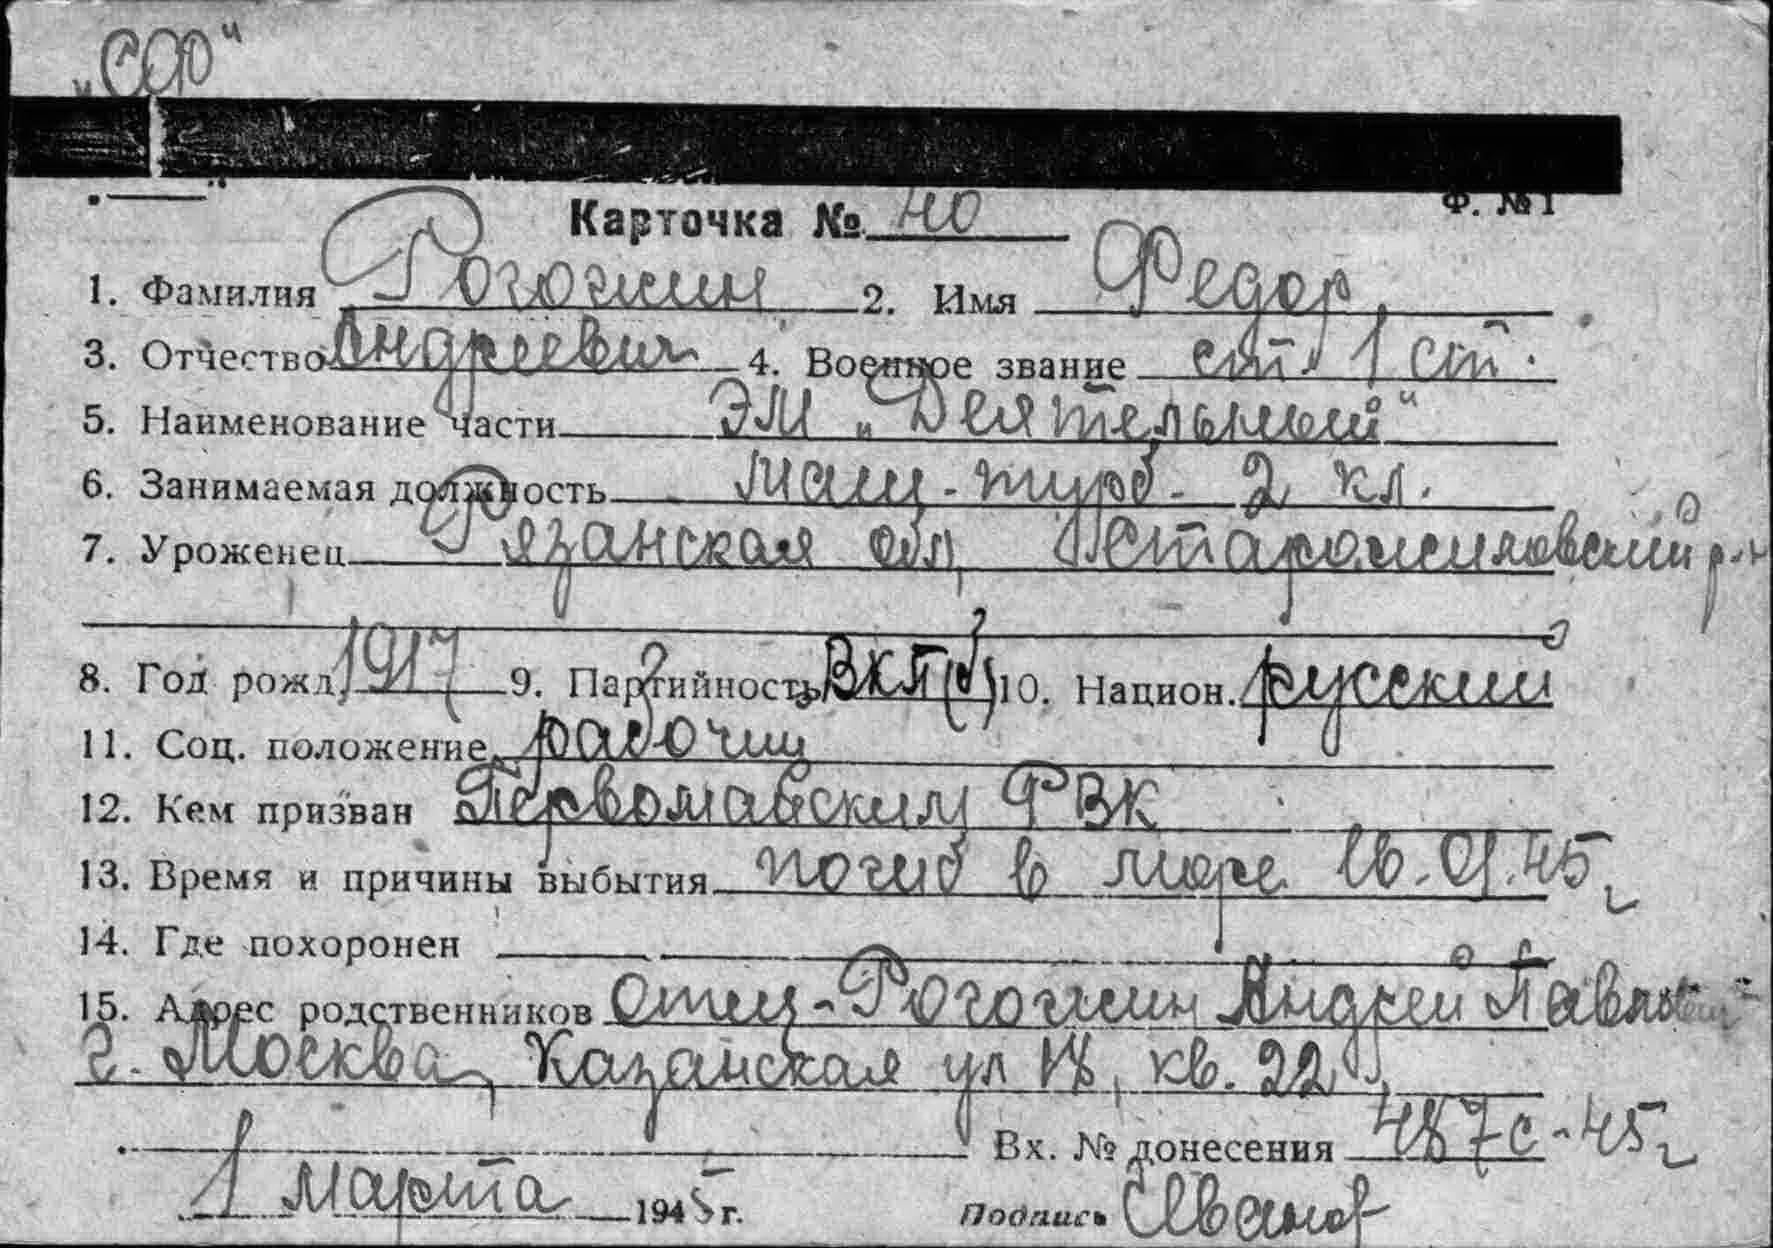 „СФ"
Ф. № 1
Карточка № 40
1. Фамилия Рогожин 2. Имя Федор
3. Отчество Андреевич 4. Военное звание ст. 1 ст.
5. Наименование части ЭМ „Деятельный"
6. Занимаемая должность маш-турб- 2 кл.
7. Уроженец Рязанская обл, Старожиловский р-н
8. Год рожд. 1917 9. Партийность ВКП(б) 10. Национ. русский
11. Соц. положение рабочий
12. Кем призван Первомайским РВК
13. Время и причины выбытия погиб в море 16.01.45 г
14. Где похоронен
15. Адрес родственников отец-Рогожин Андрей Павлович
г. Москва, Казанская ул 18, кв. 22
Вх. № донесения 487с-45г
1 марта 1945 г. Подпись Иванов